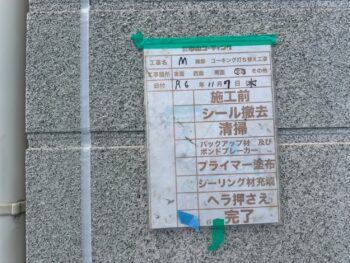 工事名 M 邸 コーキング打ち替え工事
工事箇所 東面 西面 南面 北面 その他
日付 R6年11月7日 木
施工前
シール撤去
清掃
バックアップ材 及び
ボンドブレーカー
プライマー塗布
シーリング材充填
ヘラ押さえ
完了